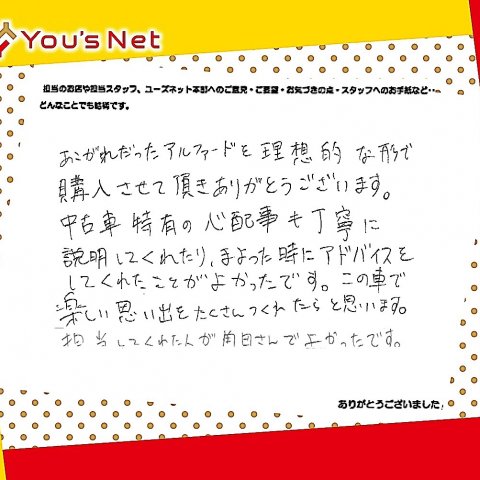 You's Net
担当のお店や担当スタッフ、ユーズネット本部へのご意見・ご要望・お気づきの点・スタッフへのお手紙など…
どんなことでも結構です。
あこがれだったアルファードを理想的な形で
購入させて頂きありがとうございます。
中古車特有の心配事も丁寧に
説明してくれたり、まよった時にアドバイスを
してくれたことがよかったです。この車で
楽しい思い出をたくさんつくれたらと思います。
担当してくれた人が角田さんでよかったです。
ありがとうございました